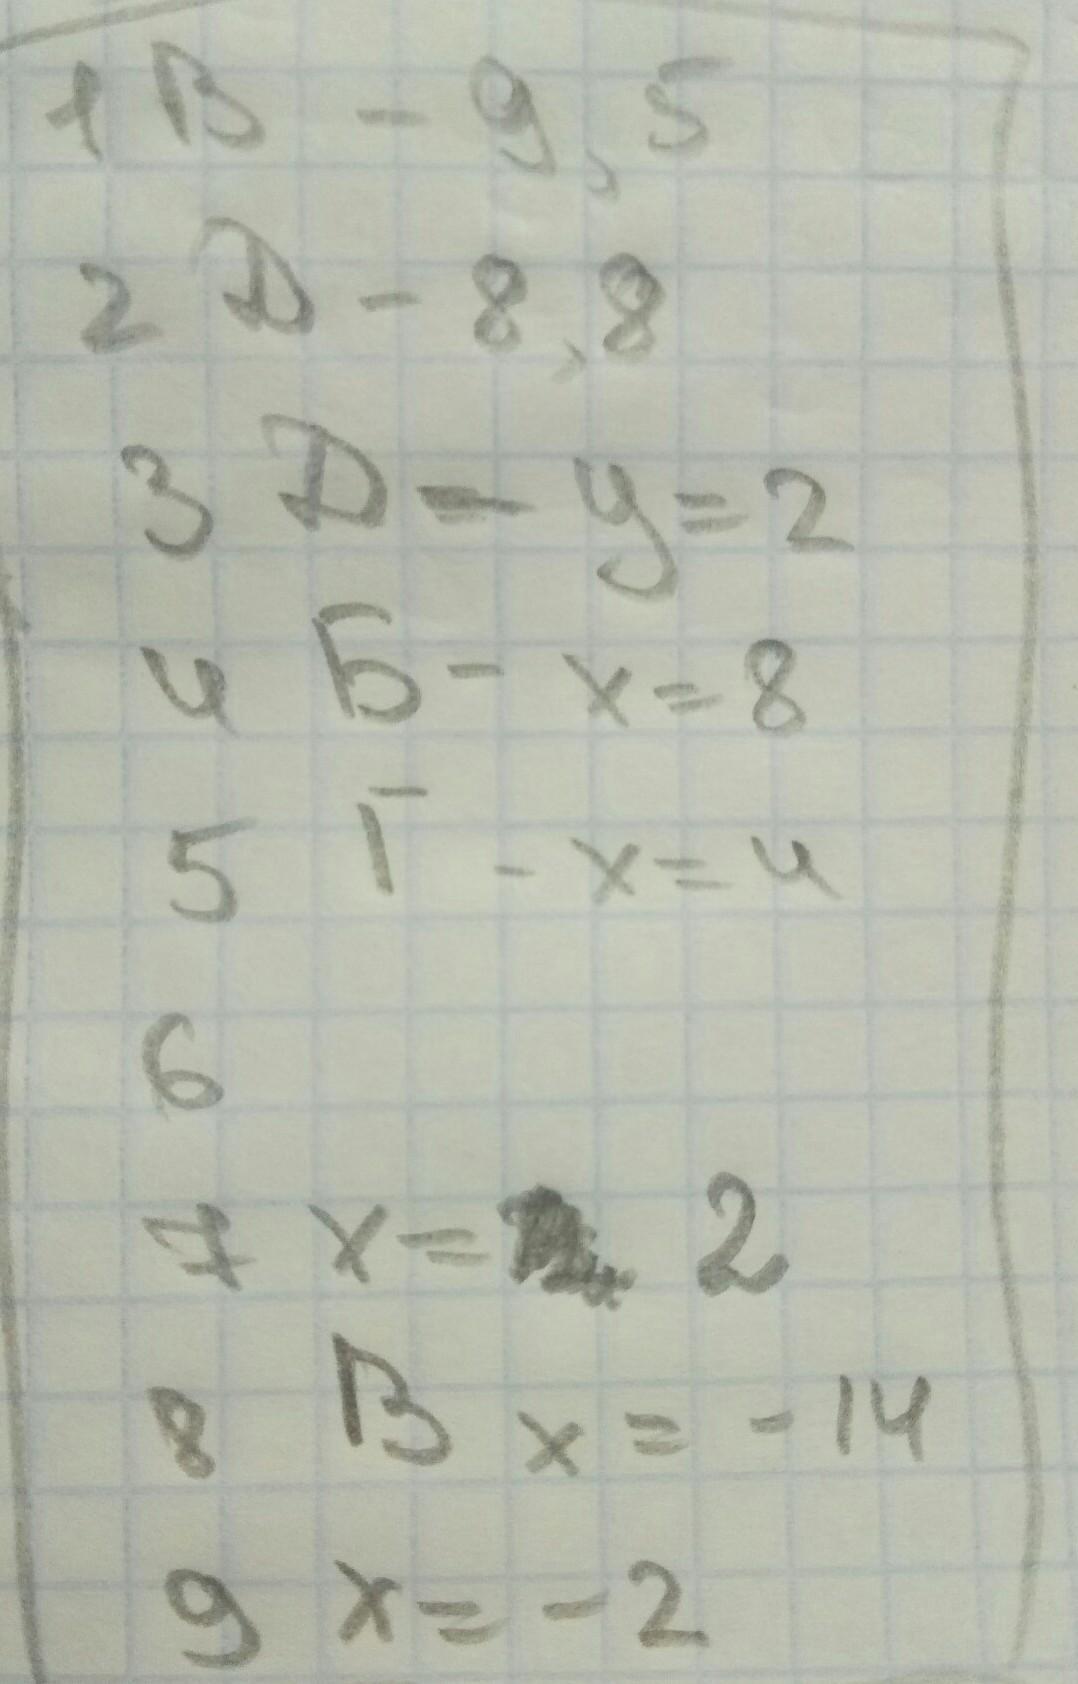 1 В - 9,5
2 Д - 8,8
3 Д - у = 2
4 Б - х = 8
5 Г - х = 4
6
7 х = 2
8 В х = -14
9 х = -2